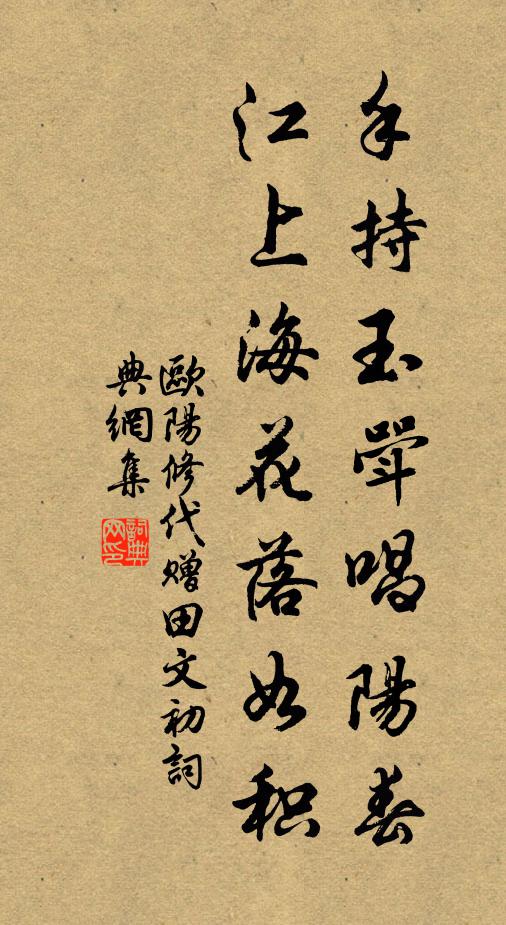 手持玉斝唱陽春
江上海花落如积
歐陽修代赠田文初詞
典網集
詞典
网印